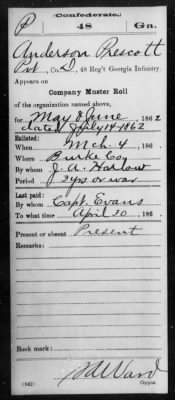 (Confederate.)
P 48 Ga.
Anderson Prescott
Pvt, Co. D, 48 Reg't Georgia Infantry.
Appears on
Company Muster Roll
of the organization named above,
for May & June, 1862
dated July 14 1862
Enlisted:
When Mch. 4, 186 .
Where Burke Co
By whom J. A. Harlow
Period 3 yrs or war
Last paid:
By whom Capt. Evans
To what time April 30, 186 .
Present or absent Present
Remarks:
Book mark:
(642) Ward
Copyist.